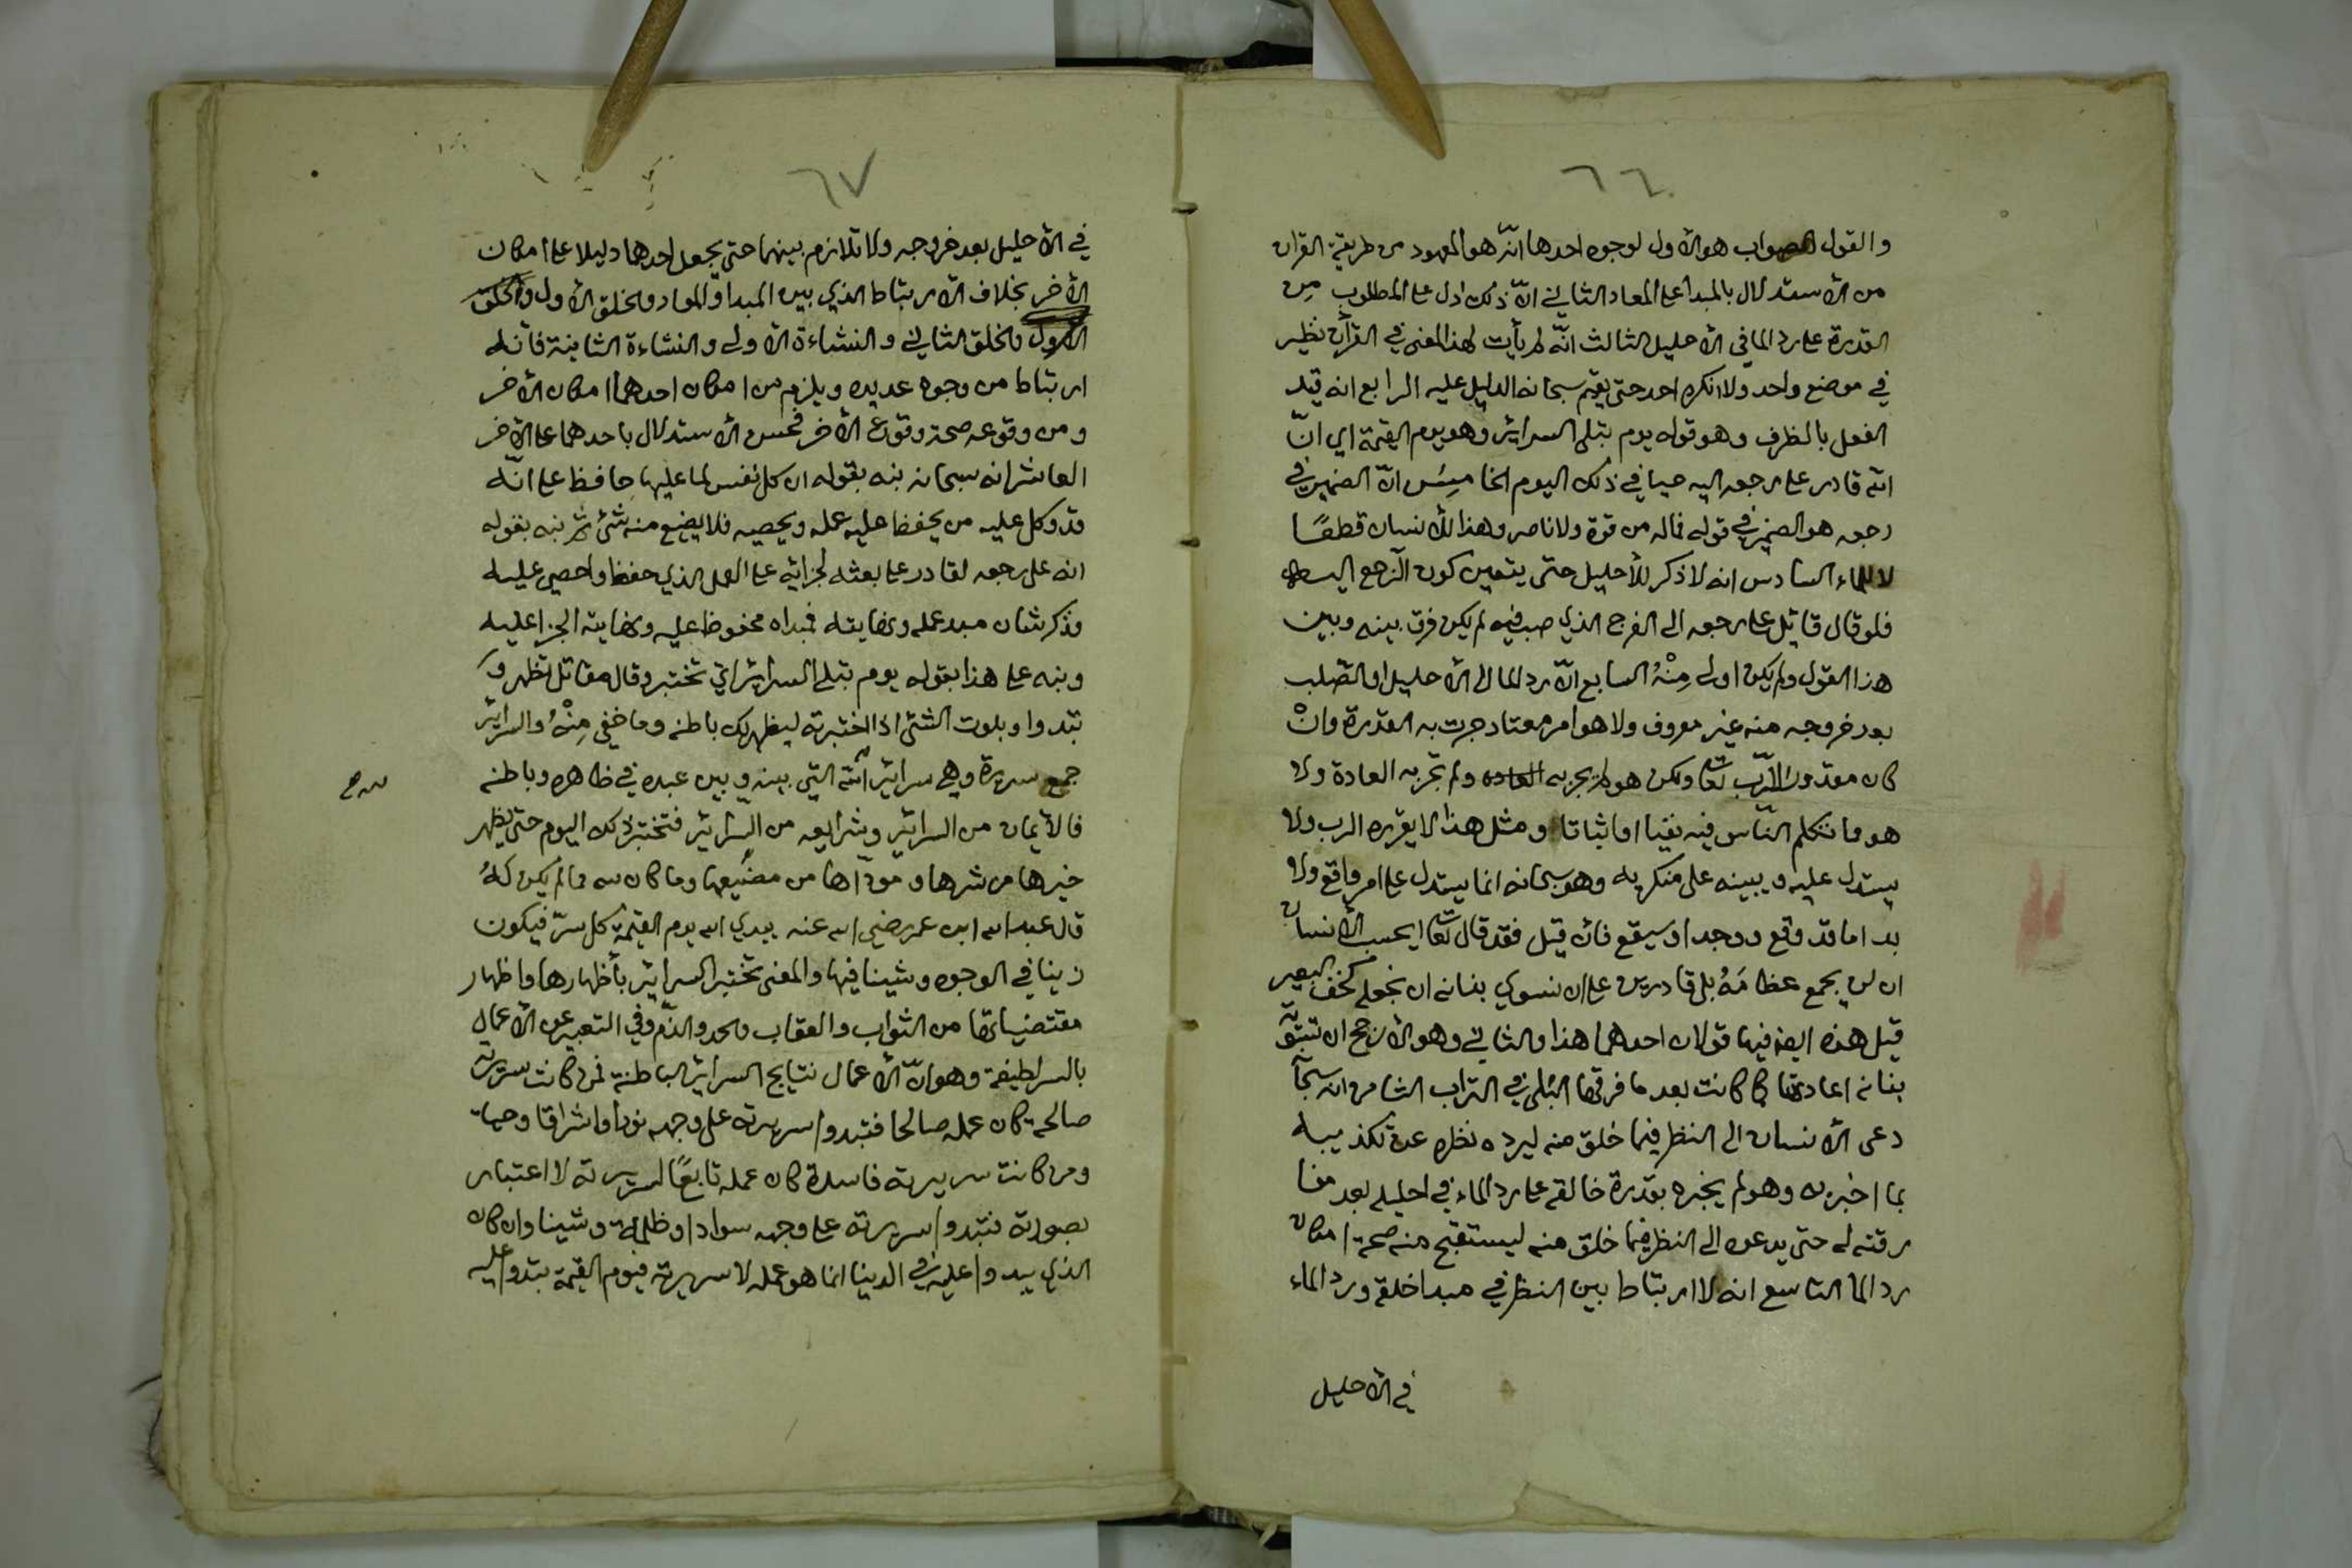 ٦٦
والقول الصواب هو الأول لوجوه احدها انّه هو المعهود من طريقة القران
من الأستدلال بالمبدا على المعاد الثاني انّ ذلك ادل على المطلوب مِن
القدرة على رد الما في الأحليل الثالث انّه لم يأت لهذا المعنى في القرآن نظير
في موضع واحد ولا انكره احد حتى يقيم سبحانه الدليل عليه الرابع انه قيد
الفعل بالظرف وهو قوله يوم تبلى السرائر وهو يوم القيمة اي انّ
الله قادر على رجعه اليه حيا في ذلك اليوم الخامِسُ انّ الضمير في
رجعه هو الضمير في قوله فماله من قوة ولا ناصر وهذا للأنسان قطعًا
لا للماء السادس انه لا ذكر للأحليل حتى يتعين كون الرجع اليه
فلو قال قائل على رجعه الى الفرج الذي صب فيه لم يكن فرق بينه وبين
هذا القول ولم يكن اولى مِنْهُ السابع انّ رد الما الى الأحليل او الصّلب
بعد خروجه منه غير معروف ولا هو امر معتاد جرت به القدرة وانْ
كان مقدور الرّب تعا ولكن هو لم يجر به العادة ولم تجر به العادة ولا
هو مما تتكلم النّاس فيه نفيا او اثباتا ومثل هذا لا يقرره الرب ولا
يستدل عليه ويبينه على منكريه وهو سبحانه انما يستدل على امر واقع ولا
بد اما قد وقع ووجد او سيقع فأن قيل فقد قال تعا ايحسب الأنسان
ان لن يجمع عظامَهُ بلى قادرين على ان نسوي بنانه ان نجعله كخف البعير
قيل هذه ايضا فيها قولان احدهما هذا والثاني وهو الأرجح ان تسوية
بنانه اعادتها كما كانت بعد ما فرقها البُلى في التراب الثامن انه سبحا
دعى الأنسان الى النظر فيما خلق منه ليرده نظره عن تكذيبه
بما اخبر به وهو لم يخبره بقدرة خالقه على رد الماء في احليله بعد مفا
رقته له حتى يدعوه الى النظر فيما خلق منه ليستقبح منه صحة امكان
رد الما التاسع انه لا ارتباط بين النظر في مبدا خلقه ورد الماء
في الأحليل
٦٧
في الأحليل بعد خروجه ولا تلازم بينهما حتى يجعل احدهما دليلا على امكان
الأخر بخلاف الأرتباط الذي بين المبدا والمعاد والخلق الأول والخلق
الأول والخلق الثاني والنشاءة الأولى والنشاءة الثانية فأنه
ارتباط من وجوه عديده ويلزم من امكان احدهما امكان الأخر
ومن وقوعه صحة وقوع الأخر فحسن الأستدلال باحدهما على الأخر
العاشر انه سبحانه نبه بقوله ان كل نفس لما عليها حافظ على انّه
قد وكل عليه من يحفظ عليه عمله ويحصيه فلا يضيع منه شئ ثم نبه بقوله
انه على رجعه لقادر على بعثه لجزائه على العمل الذي حفظ واحصي عليه
فذكر شان مبدء عمله ونهايته فمبداه محفوظ عليه ونهايته الجزا عليه
ونبه على هذا بقوله يوم تبلى السرائر اي تختبر وقال مقاتل تظهر و
تبدوا وبلوت الشئ اذا اختبرته ليظهر لك باطنه وما خفي مِنْهُ والسرائر
جمع سريرة وهي سرائر الله التي بينه وبين عبده في ظاهره وباطنه
فالأيمان من السرائر وشرايعه من السرائر فتختبر ذلك اليوم حتى يظهر
خيرها من شرها ومودّاها من مضيّعها وما كان لله مما لم يكن لهُ
قال عبد الله ابن عمر رضي الله عنه يبدي الله يوم القيمة كل سرّ فيكون
زينا في الوجوه وشينا فيها والمعنى تختبر السرائر بأظهارها واظهار
مقتضياتها من الثواب والعقاب والحمد والذّم وفي التعبير عن الأعمال
بالسر لطيفة وهو انّ الأعمال نتايج السرائر الباطنة فمن كانت سريرته
صالحة كان عمله صالحا فتبدوا سريرته على وجهه نورا واشراقا وحياء
ومن كانت سريرته فاسدة كان عمله تابعًا لسريرته لا اعتبار
بصورته فتبدوا سريرته على وجهه سوادا وظلمة وشينا وان كان
الذي يبدوا عليه في الدنيا انما هو عمله لا سريرته فيوم القيمة تبدوا عليه